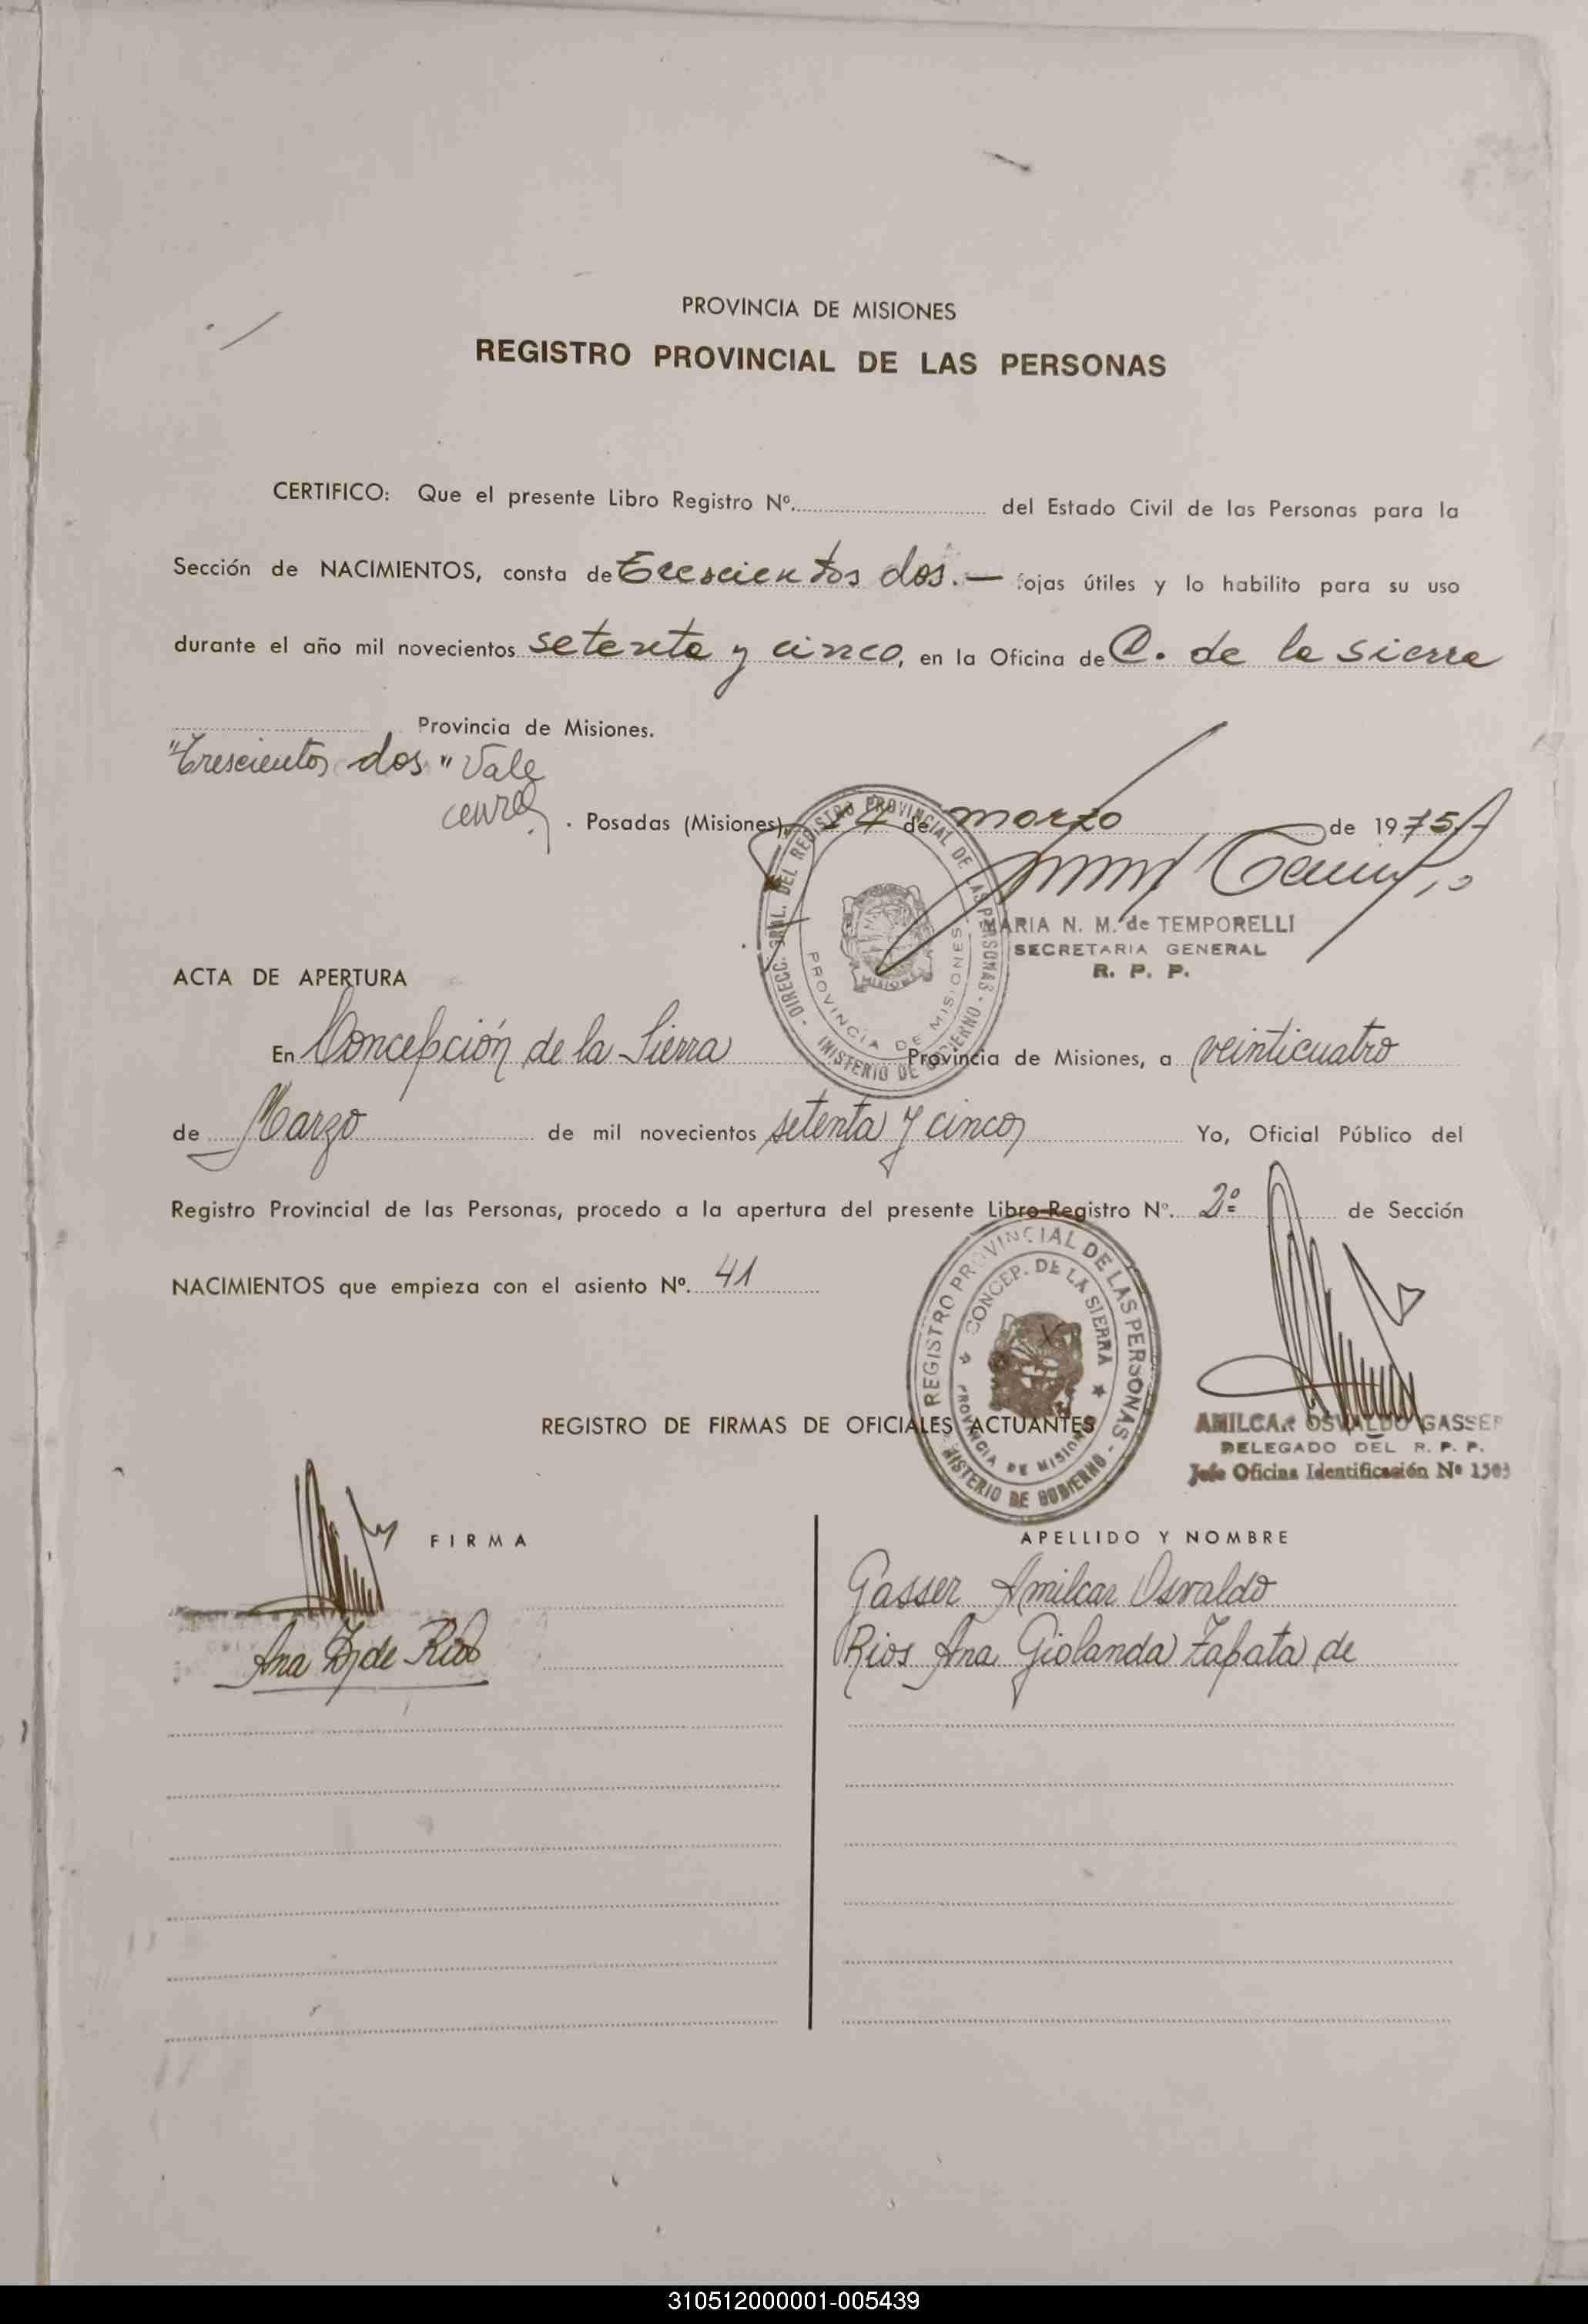 PROVINCIA DE MISIONES
REGISTRO PROVINCIAL DE LAS PERSONAS
CERTIFICO: Que el presente Libro Registro Nº. del Estado Civil de las Personas para la
Sección de NACIMIENTOS, consta de Trescientos dos.— fojas útiles y lo habilito para su uso
durante el año mil novecientos setenta y cinco, en la Oficina de C. de la Sierra
Provincia de Misiones.
"Trescientos dos" Vale
Posadas (Misiones), de marzo de 1975
DIRECC. GRAL. DEL REGISTRO PROVINCIAL DE LAS PERSONAS - MINISTERIO DE GOBIERNO -
PROVINCIA DE MISIONES
MARIA N. M. de TEMPORELLI
SECRETARIA GENERAL
R. P. P.
ACTA DE APERTURA
En Concepción de la Sierra Provincia de Misiones, a veinticuatro
de Marzo de mil novecientos setenta y cinco Yo, Oficial Público del
Registro Provincial de las Personas, procedo a la apertura del presente Libro Registro Nº. 2º de Sección
NACIMIENTOS que empieza con el asiento Nº. 41
REGISTRO PROVINCIAL DE LAS PERSONAS - MINISTERIO DE GOBIERNO -
CONCEP. DE LA SIERRA ★ PROVINCIA DE MISIONES ★
AMILCAR OSVALDO GASSER
DELEGADO DEL R. P. P.
Jefe Oficina Identificación Nº
REGISTRO DE FIRMAS DE OFICIALES ACTUANTES
FIRMA APELLIDO Y NOMBRE
Gasser Amilcar Osvaldo
Ana Z. de Rios Rios Ana Giolanda Zapata de
310512000001-005439